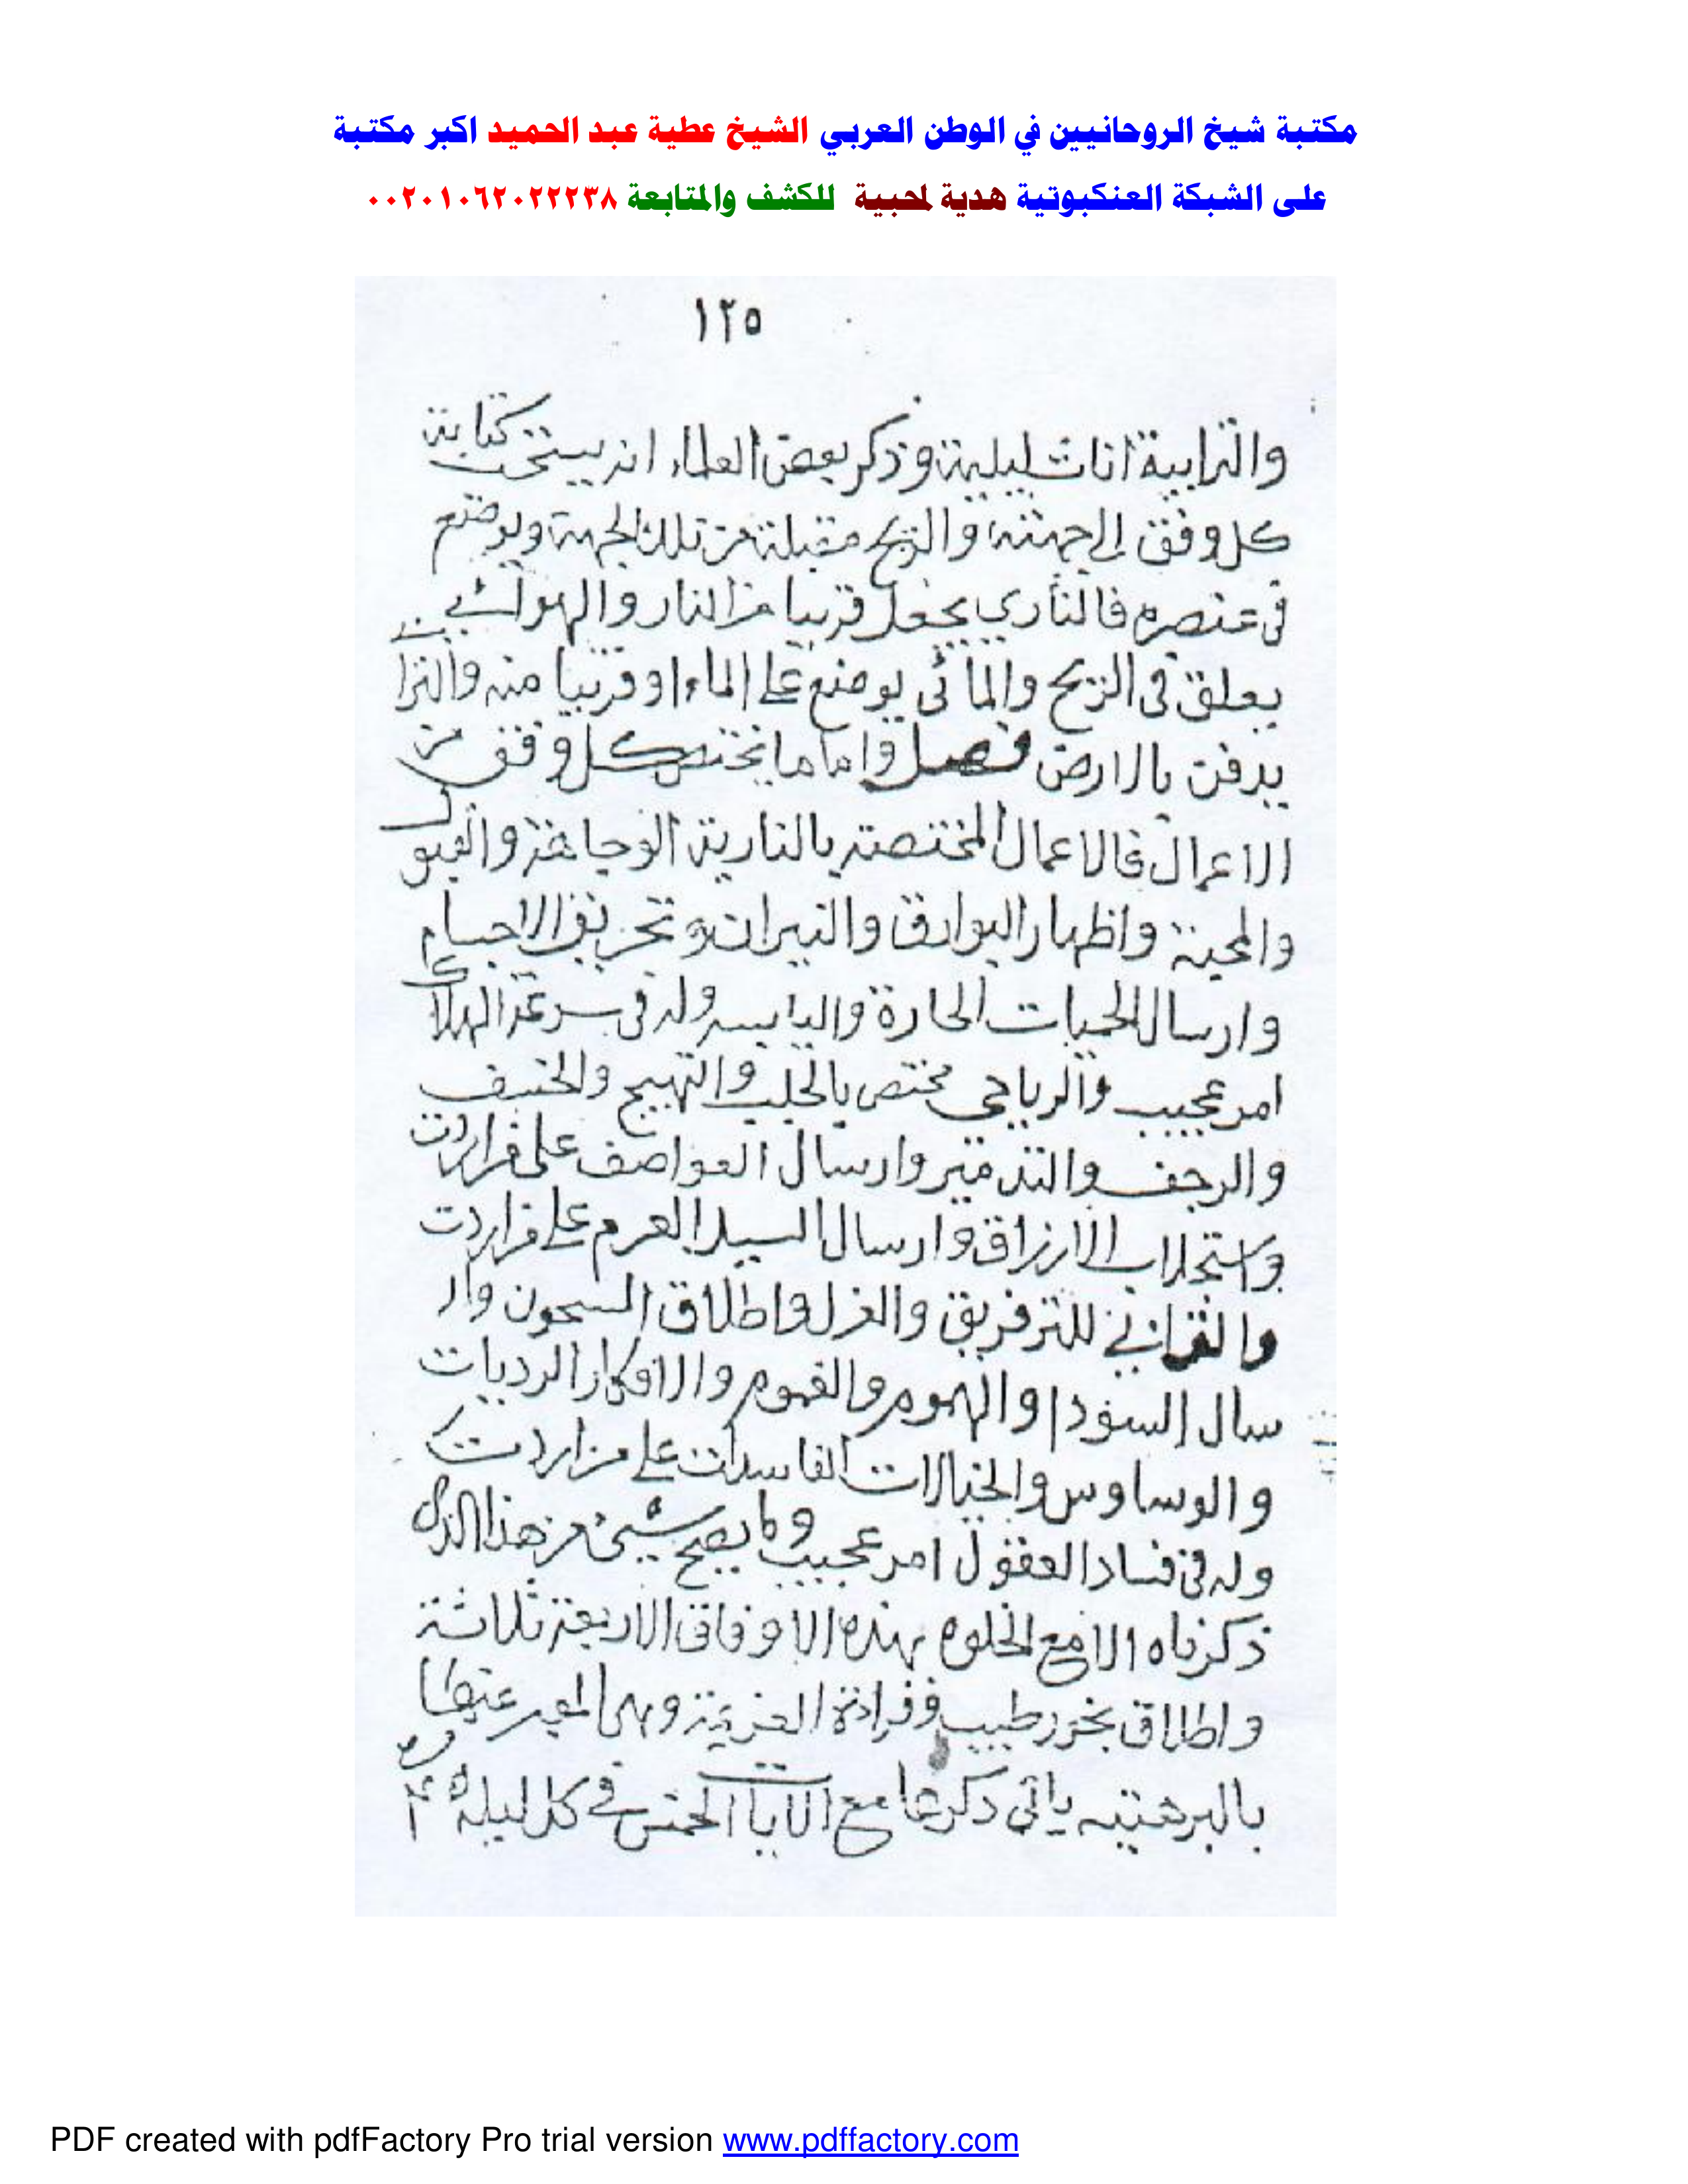 مكتبة شيخ الروحانيين في الوطن العربي الشيخ عطية عبد الحميد اكبر مكتبة
على الشبكة العنكبوتية هدية لمحبية للكشف والمتابعة ٠٠٢٠١٠٦٢٠٢٢٢٣٨
١٢٥
والترابية اناث ليلية وذكر بعض العلماء انه يستحب كتابة
كل وفق الى جهته والريح مقبلة من تلك الجهة ويوضع
فى عنصره فالنارى يجعل قريبا من النار والهوائى
يعلق فى الريح والمائى يوضع على الماء او قريبا منه والترابى
يدفن بالارض فصل واما ما يختص كل وفق من
الاعمال فالاعمال المختصة بالنارية الوجاهة والقبول
والمحبة واظهار البوارق والنيران وتحريق الاجسام
وارسال الحميات الحارة واليابسه وله فى سرعة الهلاك
امر عجيب والرياحى مختص بالجلب والتهييج والخسف
والرجف والتدمير وارسال العواصف على من اردت
واستجلاب الارزاق وارسال السيل العرم على من اردت
والترابى للتفريق والعزل واطلاق السجون وار
سال السودا والهموم والغموم والافكار الرديات
والوساوس والخيالات الفاسدات على من اردت
وله فى فساد العقول امر عجيب ولا يصح شيئ من هذا الذى
ذكرناه الا مع الخلوه بهذه الاوفاق الاربعة ثلاثة
واطلاق بخور طيب وقراءة العزيمة وهى المعبر عنها
بالبرهتيه ياتى ذكرها مع الايات الخمس فى كل ليلة
PDF created with pdfFactory Pro trial version www.pdffactory.com